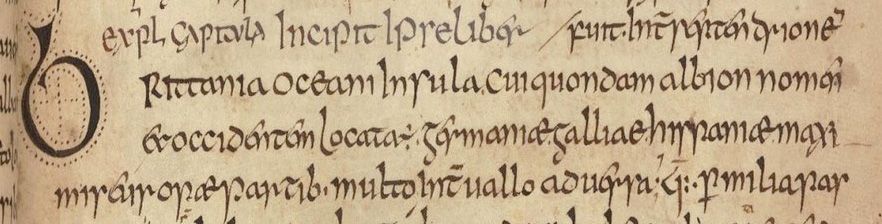 expl capitula Incipit Ipse liber / fuit· Int̄ septemdrione
BRittania oceani Insula. Cui quondam albion nomen
et occidentem locata÷· germaniæ galliae hispaniæ maxi
mis europæ partib· multo int̄uallo aduersa· q̄: ꝑ milia pas